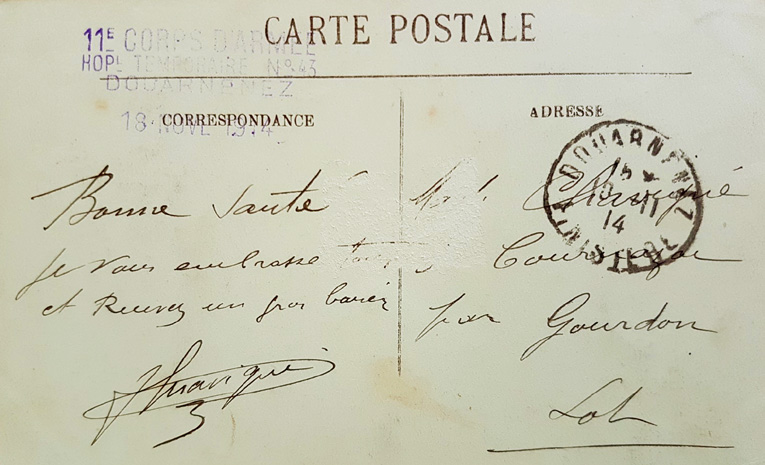 CARTE POSTALE
11E CORPS D'ARMÉE
HOPL TEMPORAIRE No 43
DOUARNENEZ
18 NOVE 1914
CORRESPONDANCE
Bonne Santé
je vous embrasse
et Recevez un gros baiser
ADRESSE
DOUARNENEZ
11
14
FINISTERE
par Gourdon
Lot